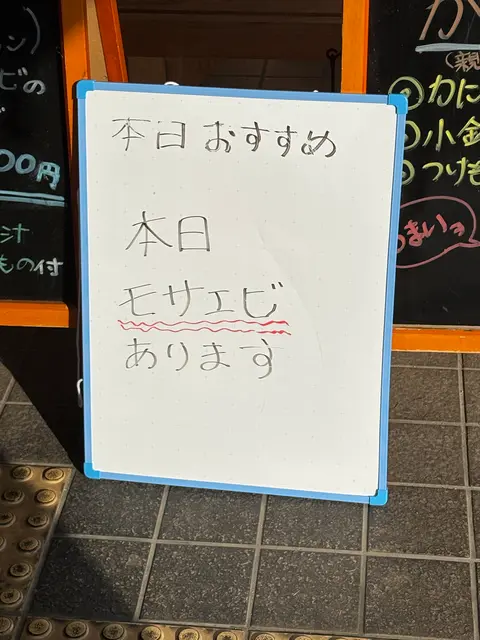 本日おすすめ
本日
モサエビ
あります
ビの
00円
汁
もの付
(親
かに
小金
つけも
まいヨ